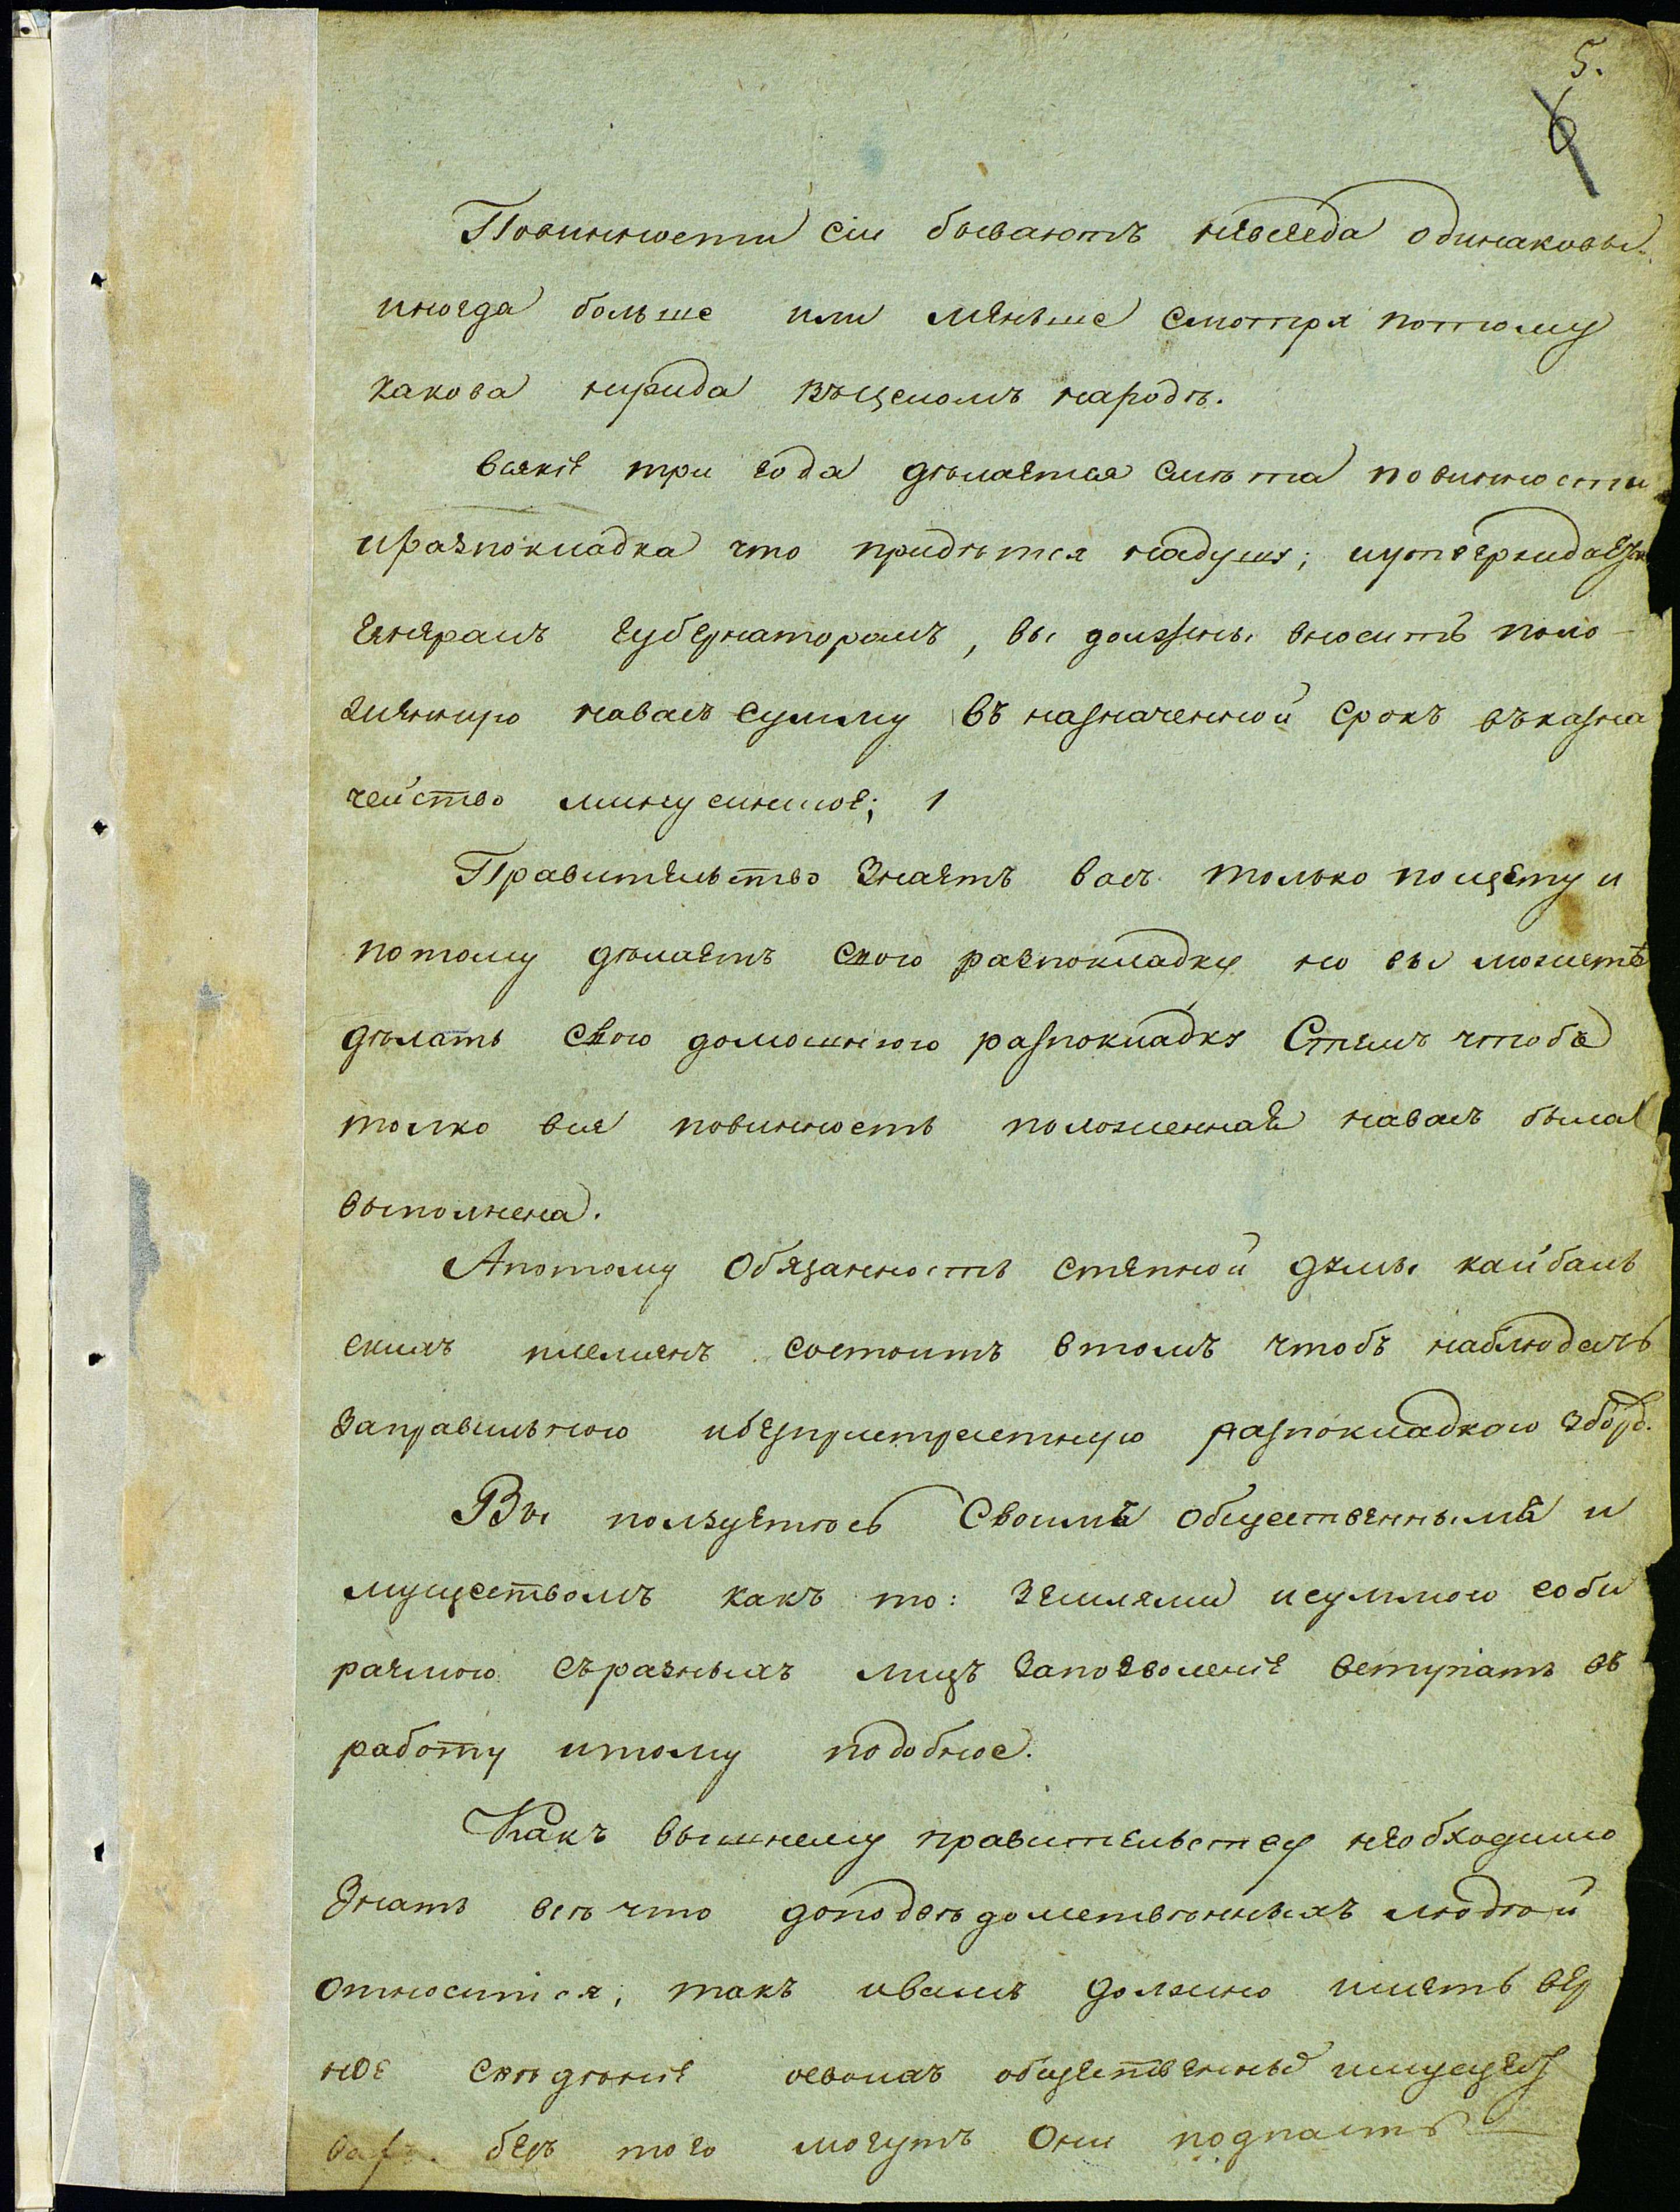 5.
6
Повинности сіи бываютъ невсегда одинаковы
иногда больше или менѣше смотря потому
какова нужда въцеломъ народѣ.
всякіе три года дѣлаетса смѣта повинности
иразпокладка что придѣтся надушу; иутверждаетъ
генералъ губернаторомъ, вы должны вносить поло-
женную навасъ сумму въ назначенной срокъ въказна
чейство минусинское;
Правительство знаетъ васъ только посчету и
потому дѣлаетъ свою разпокладку но вы можетѣ
дѣлать свою домошнюю разпокладку Стемъ чтобъ
толко вся повинность положенная навасъ была
выполнена.
Апотому Обязанность степной думы кайбаль
скихъ племенъ состоитъ втомъ чтобъ наблюдать
заправильною ибезпристрастную разпокладкою збору.
Вы ползуетесь Своимъ общественнымъ и
муществомъ какъ то: землями исуммою соби
раемою съразныхъ лицъ запозволеніе вступать въ
работу итому подобное.
Какъ вышнему правительству необходимо
Знать всѣ что доподвѣдомственныхъ людѣй
относится, такъ ивамъ должно имѣть вер
ное свѣдѣніе освоихъ общественны имущест
вах. безъ того могутъ Они подпасть